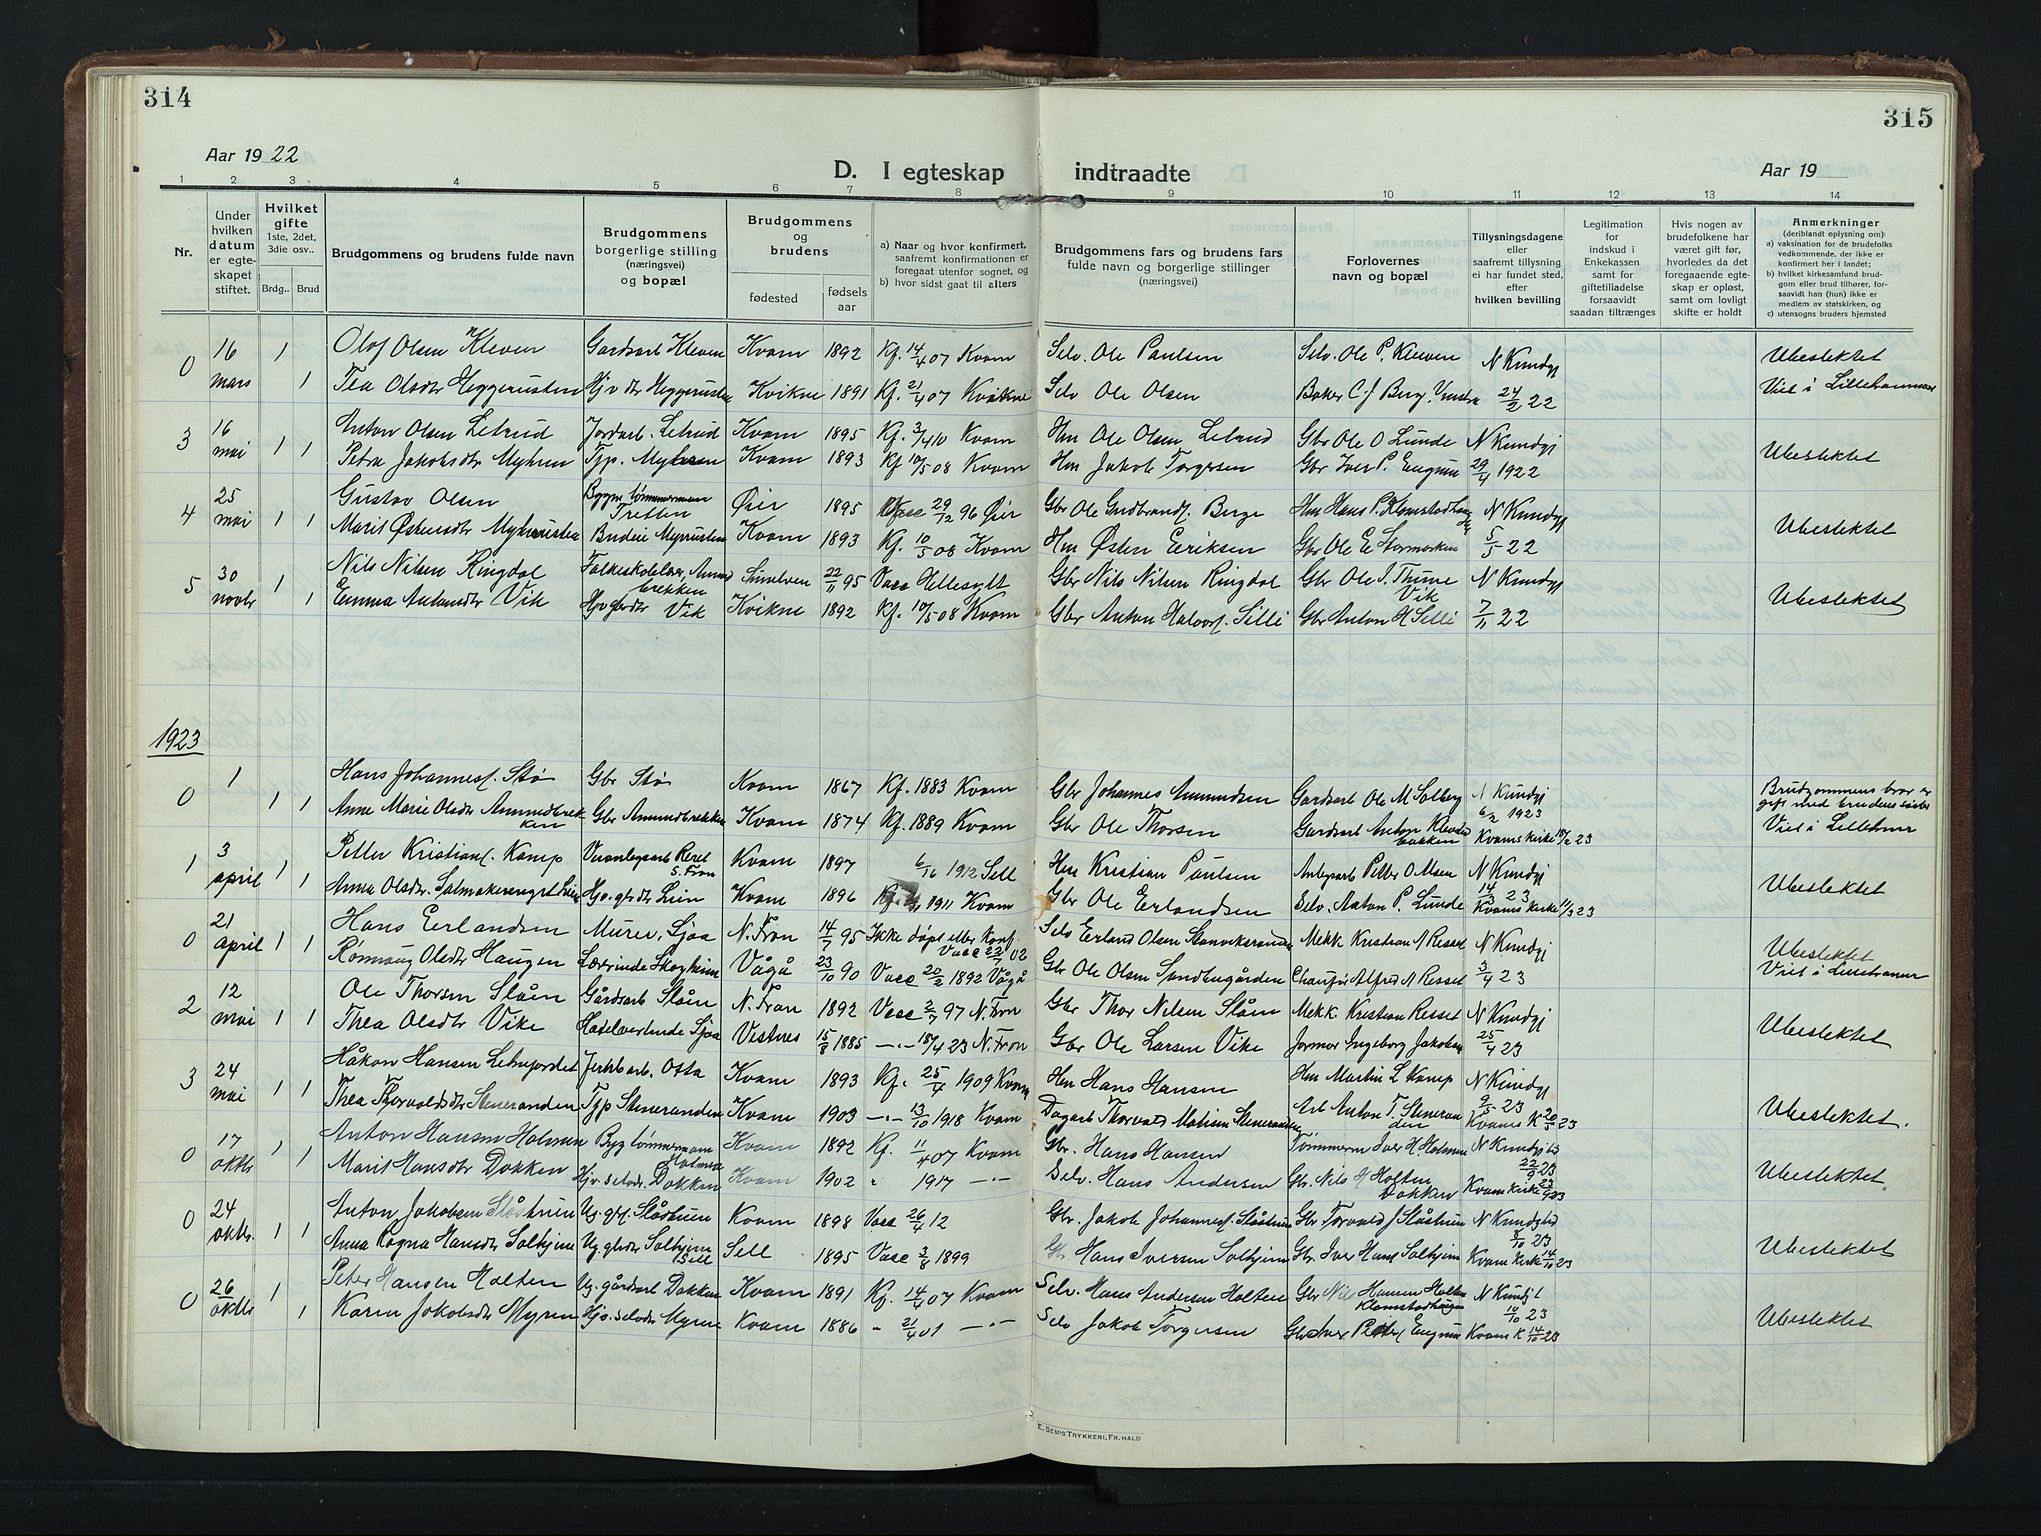 314
315
Aar 1922
D. I egteskap indtraadte
Aar 19
1 2 3 4 5 6 7 8 9 10 11 12 13 14
Nr.
Under hvilken datum er egteskapet stiftet.
Hvilket gifte 1ste, 2det, 3die osv..
Brdg.. Brud
Brudgommens og brudens fulde navn
Brudgommens borgerlige stilling (næringsvei) og bopæl
Brudgommens og brudens
fødested
fødselsaar
a) Naar og hvor konfirmert, saafremt konfirmationen er foregaat utenfor sognet, og
b) hvor sidst gaat til alters
Brudgommens fars og brudens fars fulde navn og borgerlige stillinger (næringsvei)
Forlovernes navn og bopæl
Tillysningsdagene eller saafremt tillysning ei har fundet sted, efter hvilken bevilling
Legitimation for indskud i Enkekassen samt for giftetilladelse forsaavidt saadan tiltrænges
Hvis nogen av brudefolkene har været gift før, hvorledes da det foregaaende egteskap er opløst, samt om lovligt skifte er holdt
Anmerkninger (deriblandt oplysning om):
a) vaksination for de brudefolks vedkommende, der ikke er konfirmert her i landet;
b) hvilket kirkesamfund brudgom eller brud tilhører, forsaavidt han (hun) ikke er medlem av statskirken, og
c) utensogns bruders hjemsted
0 16 mars 1 Olof Olsen Kleven Gardsarb Kleven Kvam 1892 Kf. 14/4 07 Kvam Selv. Ole Paulsen Selv. Ole P. Kleven N Kundgj Ubeslektet
1 Tea Olsdtr Heggerusten Hjv dtr Heggerusten Kvikne 1891 Kf. 21/4 07 Kvikne Selv Ole Olsen Baker C. J Berg, Vinstra 24/2 22 Viet i Lillehammer
3 16 mai 1 1 Anton Olsen Letrud Jordarb. Letrud Kvam 1895 Kf. 3/4 10 Kvam Hm Ole Olsen Letrud Gbr Ole O Lunde N Kundgj Ubeslektet
Petra Jakobsdtr Myhren Tjp. Myhren Kvam 1893 Kf 10/5 08 Kvam Hm Jakob Torgersen Gbr Iver P. Engum 29/4 1922
4 25 mai 1 1 Gustav Olsen Bygn tømmermann Tretten Øier 1895 Vacc 29/12 96 Øier Gbr Ole Gudbrands. Berge Hm Hans P. Klomstadhaugen N Kundgj Ubeslektet
Marit Østensdtr Myhrusten Budeie Myrusten Kvam 1893 Kf. 10/5 08 Kvam Hm Østen Eriksen Gbr Ole E Stormorken 5/5 22
5 30 novbr 1 Nils Nilsen Ringdal Folkeskolelærer, Amundbrekken Sunelven 22/11 95 Vacc Hellesylt Gbr Nils Nilsen Ringdal Gbr Ole I. Thune Vik N Kundgj Ubeslektet
1 Emma Antonsdtr Vik Hjv gbrdtr Vik Kvikne 1892 Kf. 10/5 08 Kvam Gbr Anton Halvors. Silli Gbr Anton H Silli 7/11 22
1923
0 1 1 1 Hans Johannes. Stø Gbr Stø Kvam 1867 Kf. 1883 Kvam Gbr Johannes Amundsen Gardsarb Ole M Solberg N Kundgj 6/2 1923 Brudgommens bror er gift med brudens søster
Anne Marie Olsdtr Amundbrekken Gbr Amundbrekken Kvam 1874 Kf. 1889 Kvam Gbr Ole Thorsen Gardsarb Anton Klevebakken Kvams kirke 18/2 23 Viet i Lillehmer
1 3 april 1 1 Petter Kristians. Kamp Veianlegsarb Reset S. Fron Kvam 1897 6/16 1912 Sell Hm Kristian Paulsen Anlegsarb Petter O. Moen N Kundgj 14/3 23 Ubeslektet
Anna Olsdtr. Salmakerengset Lien Hjv. gbrdtr Lien Kvam 1896 Kf. 1911 Kvam Gbr Ole Erlandsen Selv. Anton P. Lunde Kvams kirke 11/3 23
0 21 april 1 1 Hans Erlandsen Murer, Sjoa N. Fron 14/7 95 Ikke døpt eller konf. Vacc 22/7 02 Selv Erland Olsen Mekk Kristian N Resset N Kundgj Ubeslektet
Rønnaug Olsdtr Haugen Lærerinde Skogheim Vågå 23/10 90 Vacc 20/2 1892 Vågå Gbr Ole Olsen Sandbugården Chaufør Alfred N Resset 3/4 23 Viet i Lillehammer
2 12 mai 1 1 Ole Thorsen Slåen Gårdsarb Slåen N. Fron 1892 Vacc 2/7 97 N. Fron Gbr Thor Nilsen Slåen Mekk. Kristian Resset N Kundgj Ubeslektet
Thea Olsdtr Vike Hotelvertinde Sjoa Vestnes 15/8 1885 -"- 18/4 23 N. Fron Gbr Ole Larsen Vike Jormor Ingeborg Jakobsen 25/4 23
3 24 mai 1 1 Håkon Hansen Letrufordet Jernbarb. Otta Kvam 1893 Kf. 25/4 1909 Kvam Hm Hans Hansen Hm Martin L Kamp N Kundgj 9/5 23 Ubeslektet.
Thea Thorvaldsdtr Steneranden Tjp Steneranden Kvam 1903 -"- 13/10 1918 Kvam Dagarb Thorvald Matisen Steneranden Arb Anton T. Steneranden Kvams K 20/5 23
0 17 oktbr 1 1 Anton Hansen Holmen Byg tømmermann Holmen Kvam 1892 Kf. 11/4 07 Kvam Gbr. Hans Hansen Tømmerm Iver H. Holmen N Kundgj 22/9 23 Ubeslektet
Marit Hansdtr Dokken Hjv. selvdtr. Dokken Kvam 1902 " 1917 -"- Selv. Hans Andersen Gbr. Nils H Holten Dokken Kvam kirke 23/9 23
0 24 oktbr. 1 1 Anton Jakobsen Slåstuen Ug. gbr. Slåstuen Kvam 1898 Vacc 26/4 12 Gbr. Jakob Johannes. Slåstuen Gbr Torvald J Slåstuen N Kundgjed 8/10 23 Ubeslektet
Anna Ragna Hansdtr Solhjem Ug gbrdtr Solhjem Sell Sell 1895 Vacc 3/8 1899 Gbr. Hans Iversen Solhjem Gbr. Iver Hans Solhjem Kvam kirke 14/10 23
0 26 oktbr 1 Peter Hansen Holten Ug. gårdsarb Dokken Kvam 1891 Kf. 14/4 07 Kvam Selv. Hans Andersen Holten Gbr Nils Hansen Holten Klomstadhaugen N Kundgt 10/10 23 Ubeslektet
1 Karen Jakobsdtr Myren Hjv. selvdtr Myren Kvam 1886 " 21/4 01 -"- Selv Jakob Torgersen Gbr Iver Peters Engum Kvam K 14/10 23
E. SEM'S TRYKKERI, FR. HALD